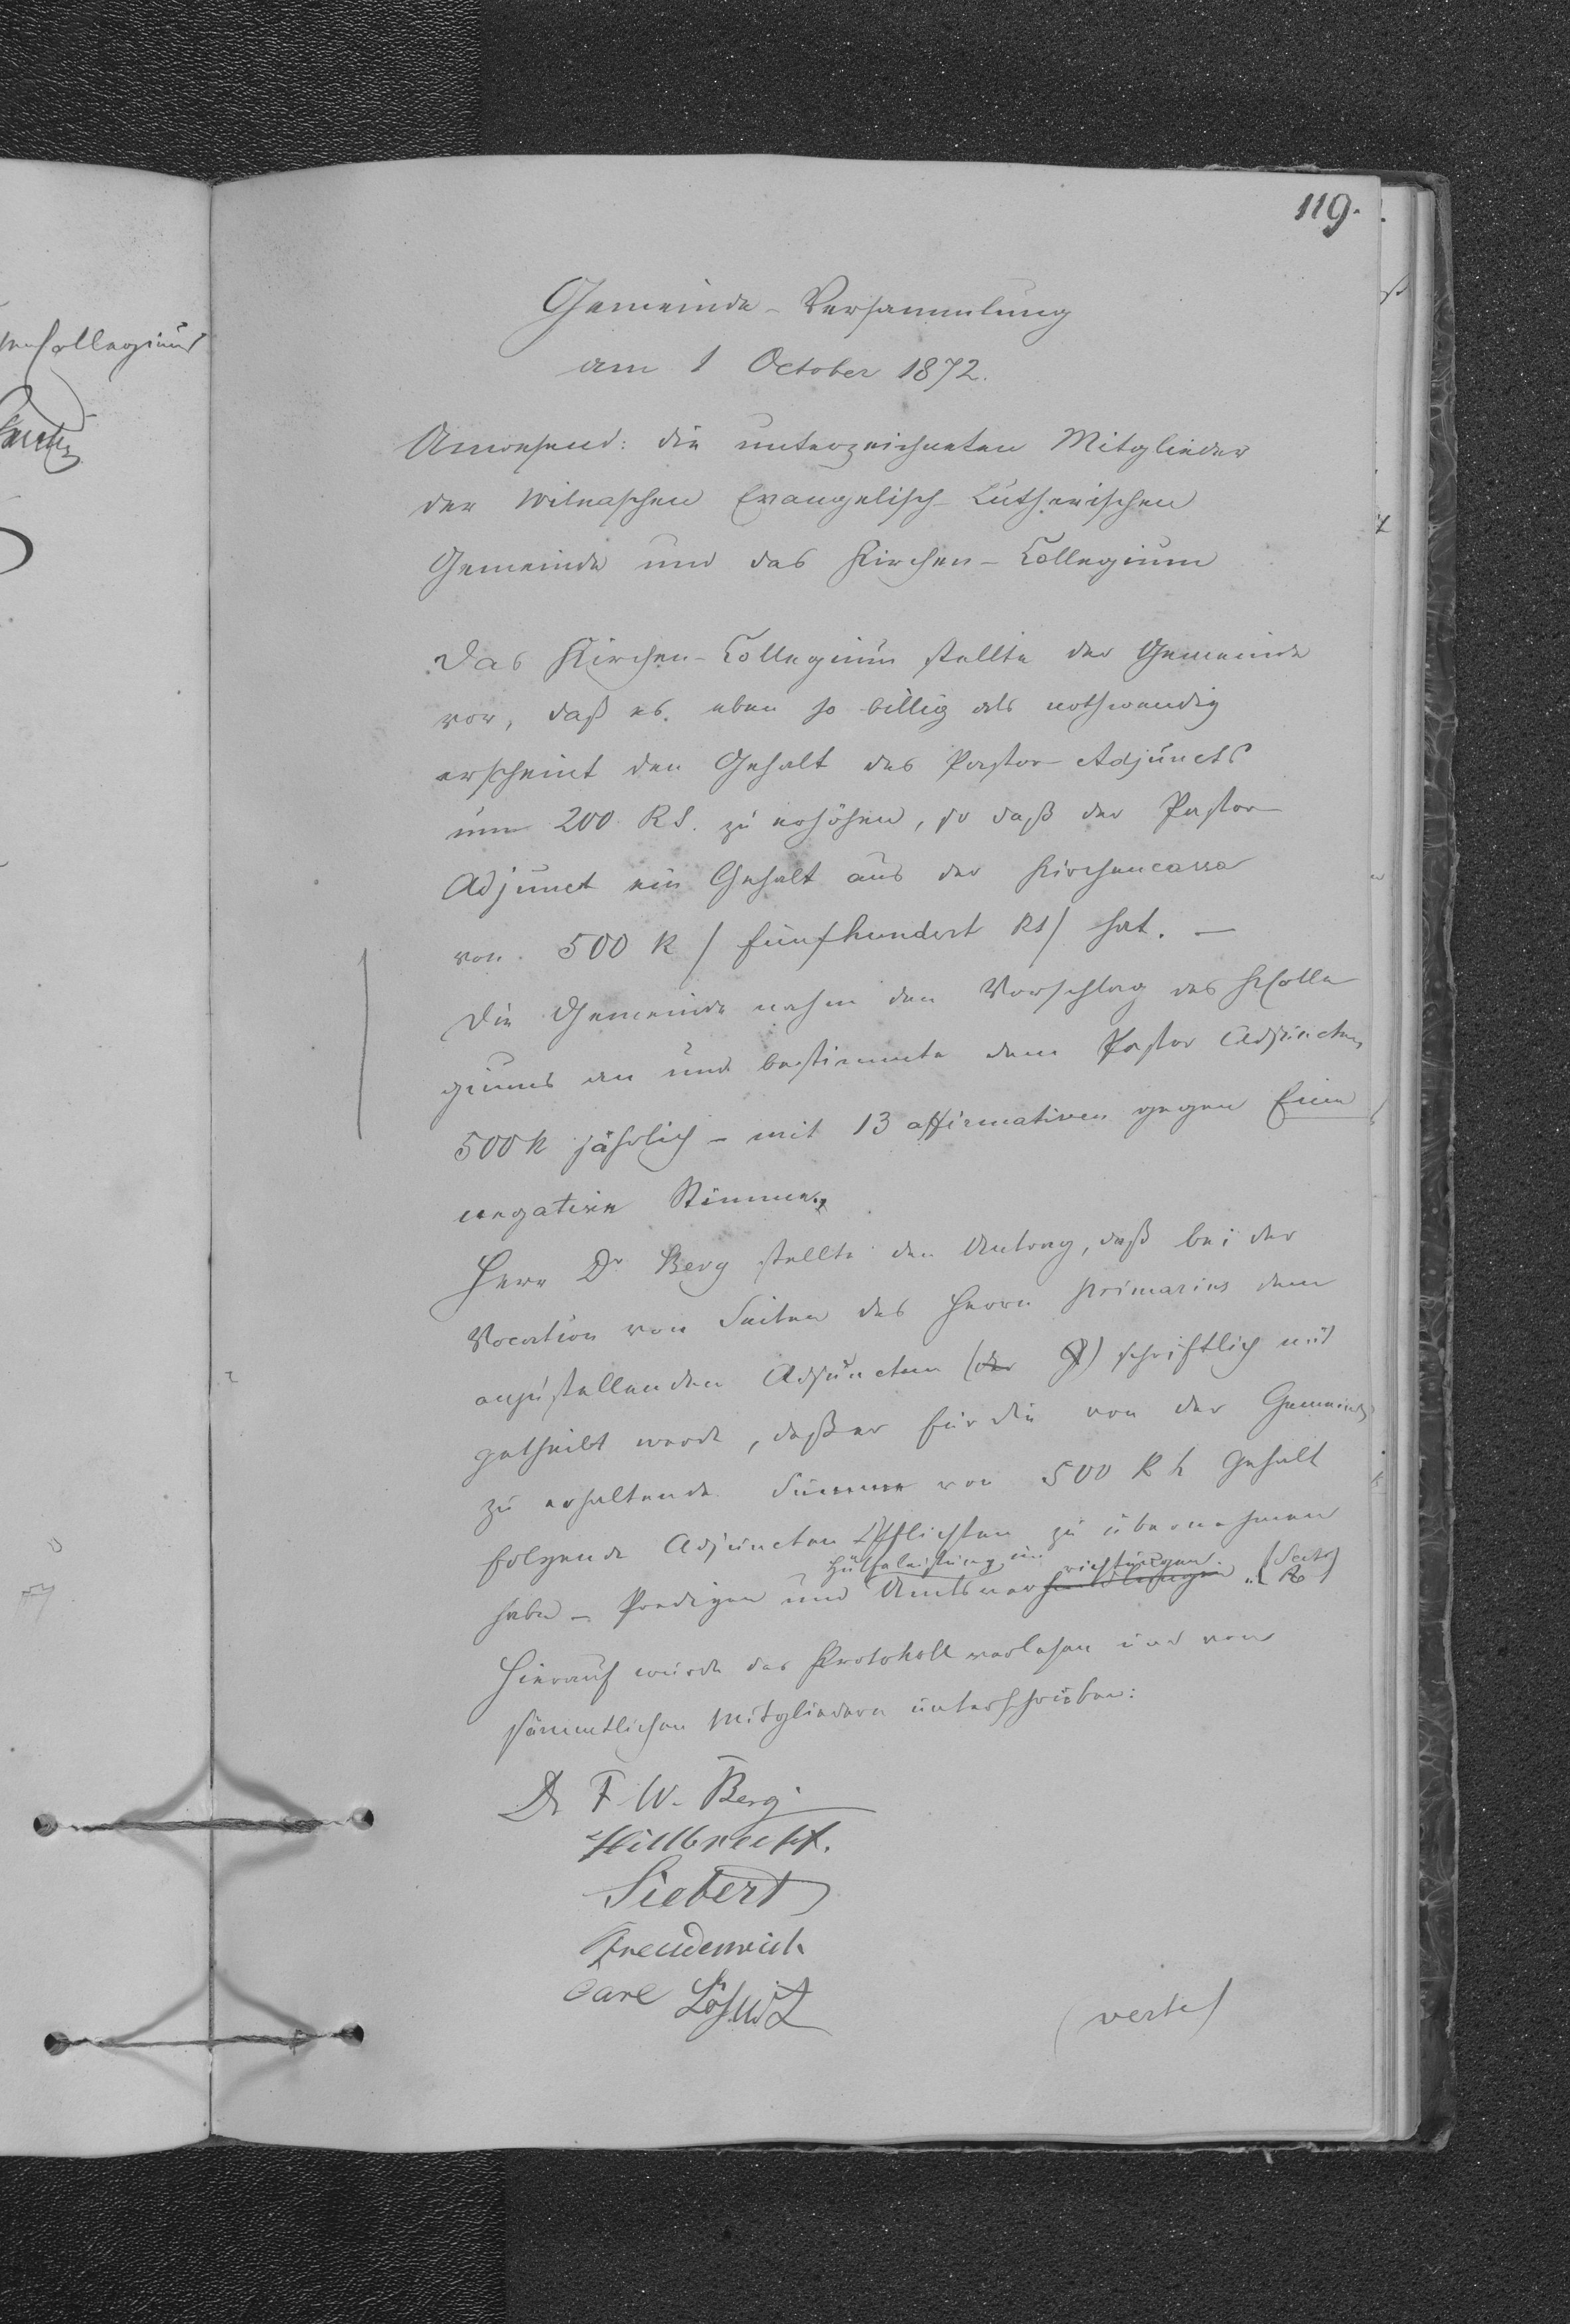 119.
Gemeinde-Versammlung
am 1 October 1872.
Anwesend: die unterzeichneten Mitglieder
der Wilnaschen Evangelisch-Lutherischen
Gemeinde und das Kirchen-Collegium
Das Kirchen-Collegium stellte der Gemeinde
vor, daß es eben so billig als nothwendig
erscheint den Gehalt des Pastor-Adjuncts
um 200 RS. zu erhöhen, so daß der Pastor
Adjunct ein Gehalt aus der Kirchencassa
von 500 R / fünfhundert RS / hat. —
Die Gemeinde nahm den Vorschlag des KColle
giums an und bestimmte dem Pastor Adjuncten
500 R jährlich – mit 13 affirmativen gegen Eine
negative Stimme.
Herr Dr Berg stellte den Antrag, daß bei der
Vocation von Seiten des Herrn Primarius dem
anzustellenden Adjuncten (der P) schriftlich mit
getheilt werde, daß er für die von der Gemeinde
zu erhaltende Summe von 500 R Gehalt
folgende Adjuncten Pflichten zu übernehmen
Hülfsleistung in richtungen
habe – Predigen und Amtsver
Hierauf wurde das Protokoll verlesen und von
sämmtlichen Mitgliedern unterschrieben:
Dr F. W. Berg
Hillbrecht.
Siebert
Freudenreich
Carl
(verte)